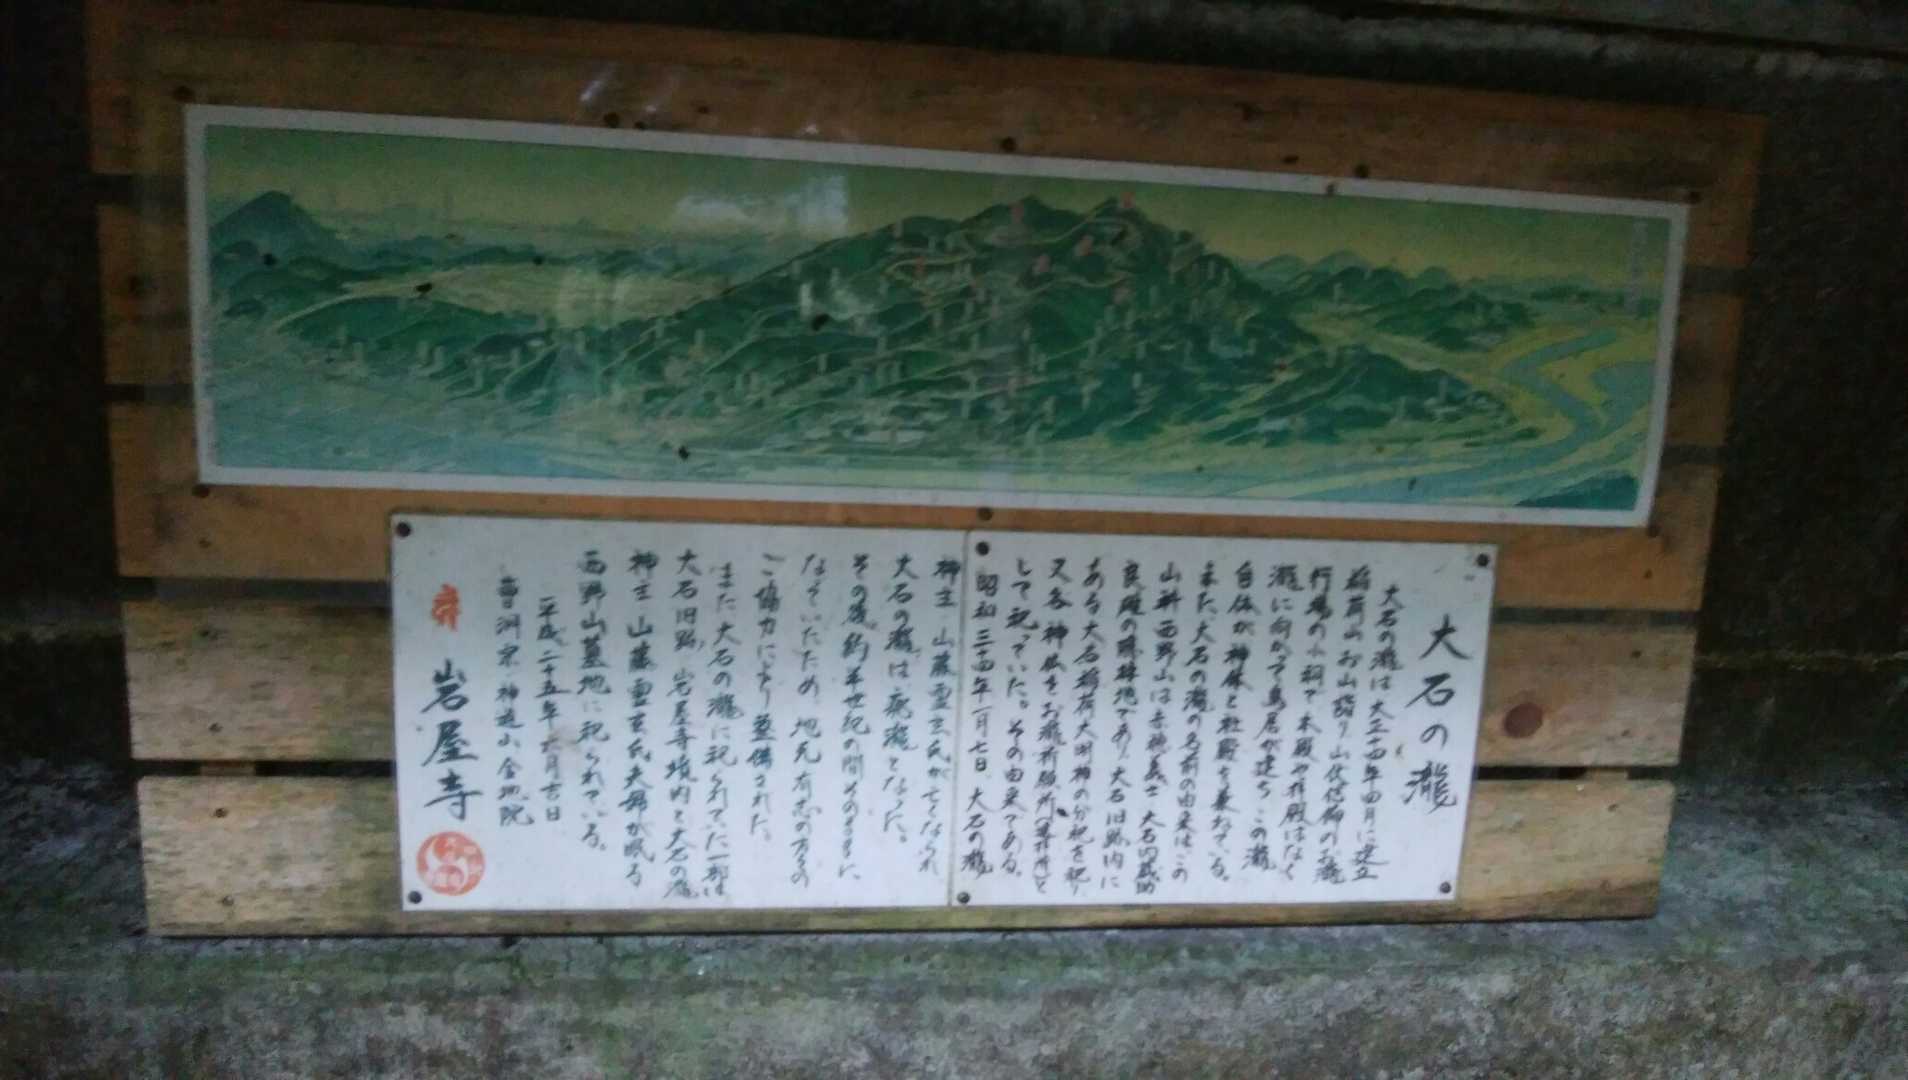 大石の瀧
大石の瀧は大正十四年四月に建立
稲荷山お山踊り山伏信仰のお瀧
行場の小祠で本殿や拝殿はなく
瀧に向かって鳥居が建ちこの瀧
自体が神体と社殿を兼ねている。
また、大石の瀧の名前の由来はこの
山科西野山は赤穂義士大石内蔵助
良雄の隠棲地であり大石旧跡内に
ある大石稲荷大明神の分祀を祀り
又各神仏をお瀧祈願所
して祀っていた。その由来である。
昭和三十四年一月七日、大石の瀧
神主 山藤霊玄氏が亡くなられ
大石の瀧は廃瀧となった。
その後約半世紀の間そのままに
なっていたため、地元有志の方々の
ご協力により整備された。
また大石の瀧に祀られていた一部は
大石旧跡、岩屋寺境内と大石の瀧
神主 山藤霊玄氏夫婦が眠る
西野山墓地に祀られている。
平成二十五年六月吉日
曹洞宗 神遊山金地院
岩屋寺